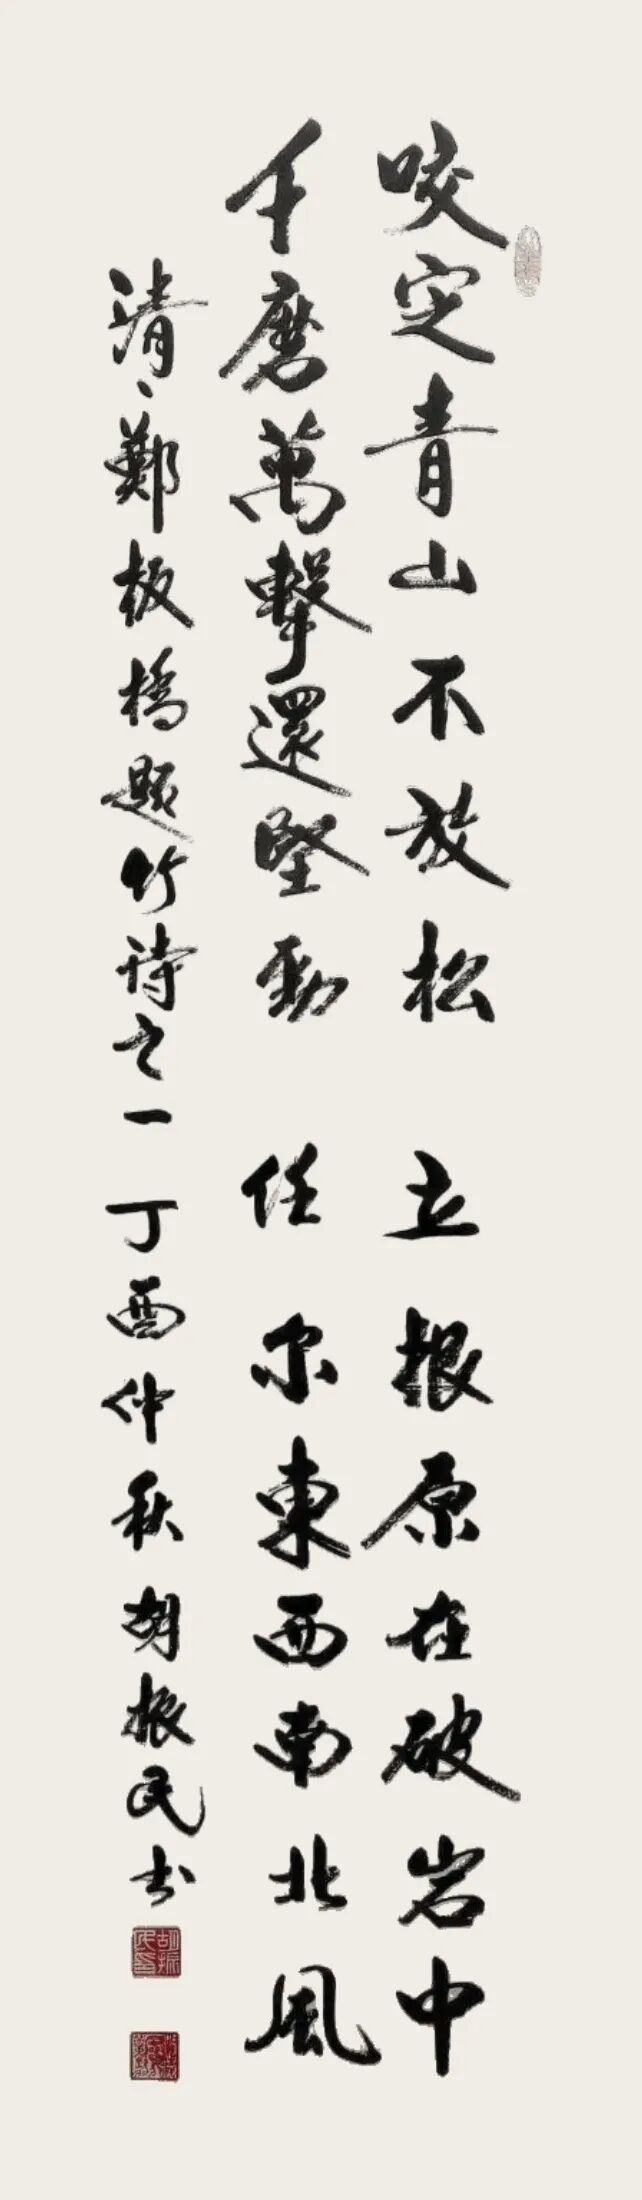 咬定青山不放松 立根原在破岩中
千磨萬擊還堅勁 任尔東西南北風
清、鄭板橋題竹詩之一 丁酉仲秋 胡振民书